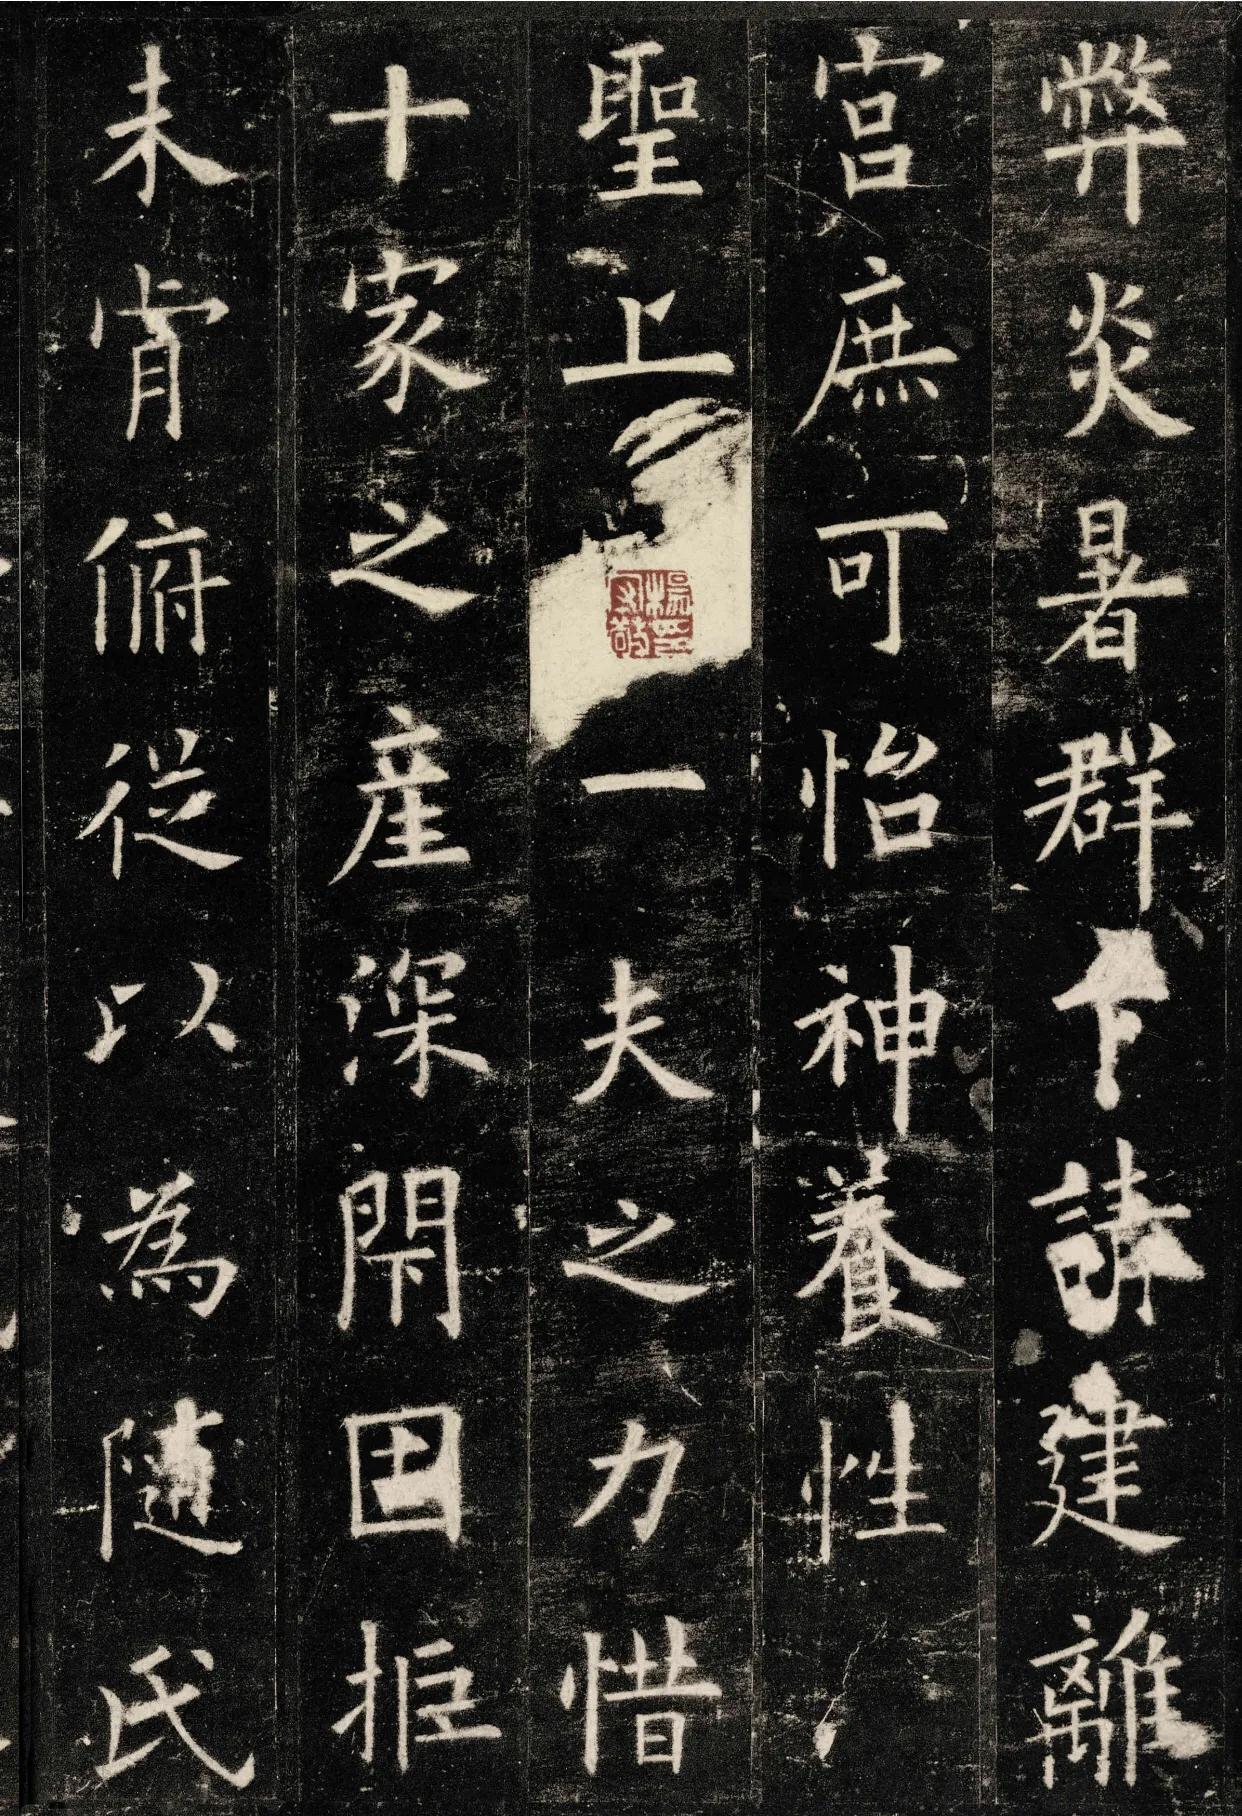 弊炎暑群下請建離
宫庶可怡神養性
聖上一夫之力惜
十家之産深閇固拒
未肯俯從以為隨氏
楊印守敬